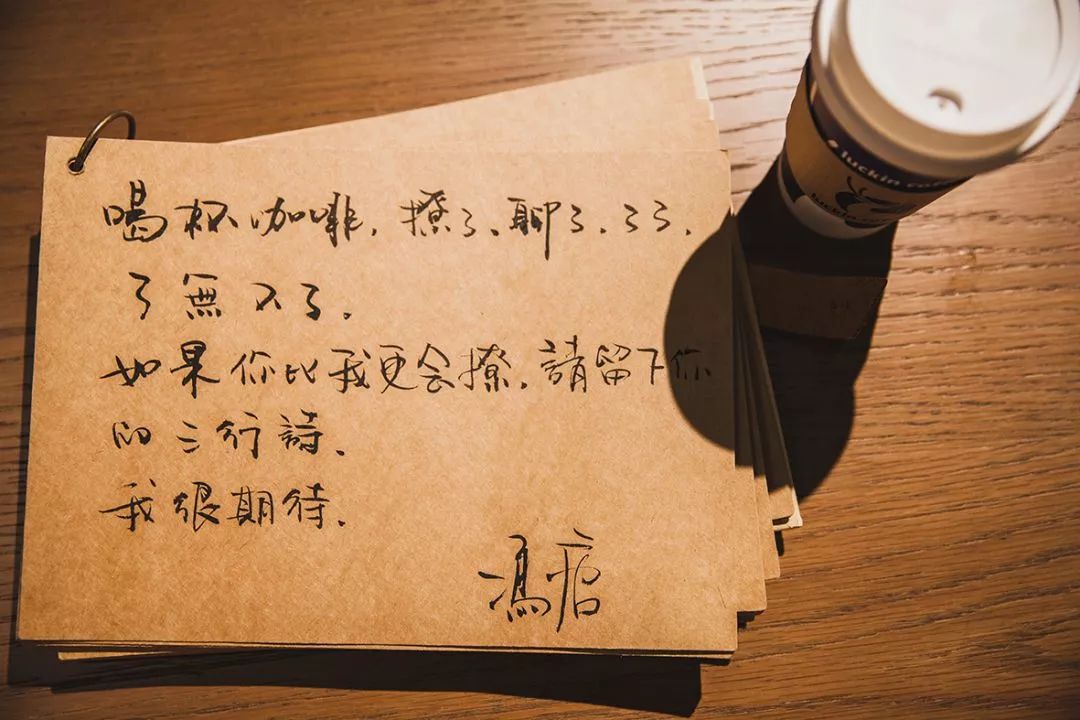 喝杯咖啡,撩了、聊了、了了,
了無不了,
如果你比我更会撩,請留下你
的三行詩、
我很期待、
馮唐
luckin coffee